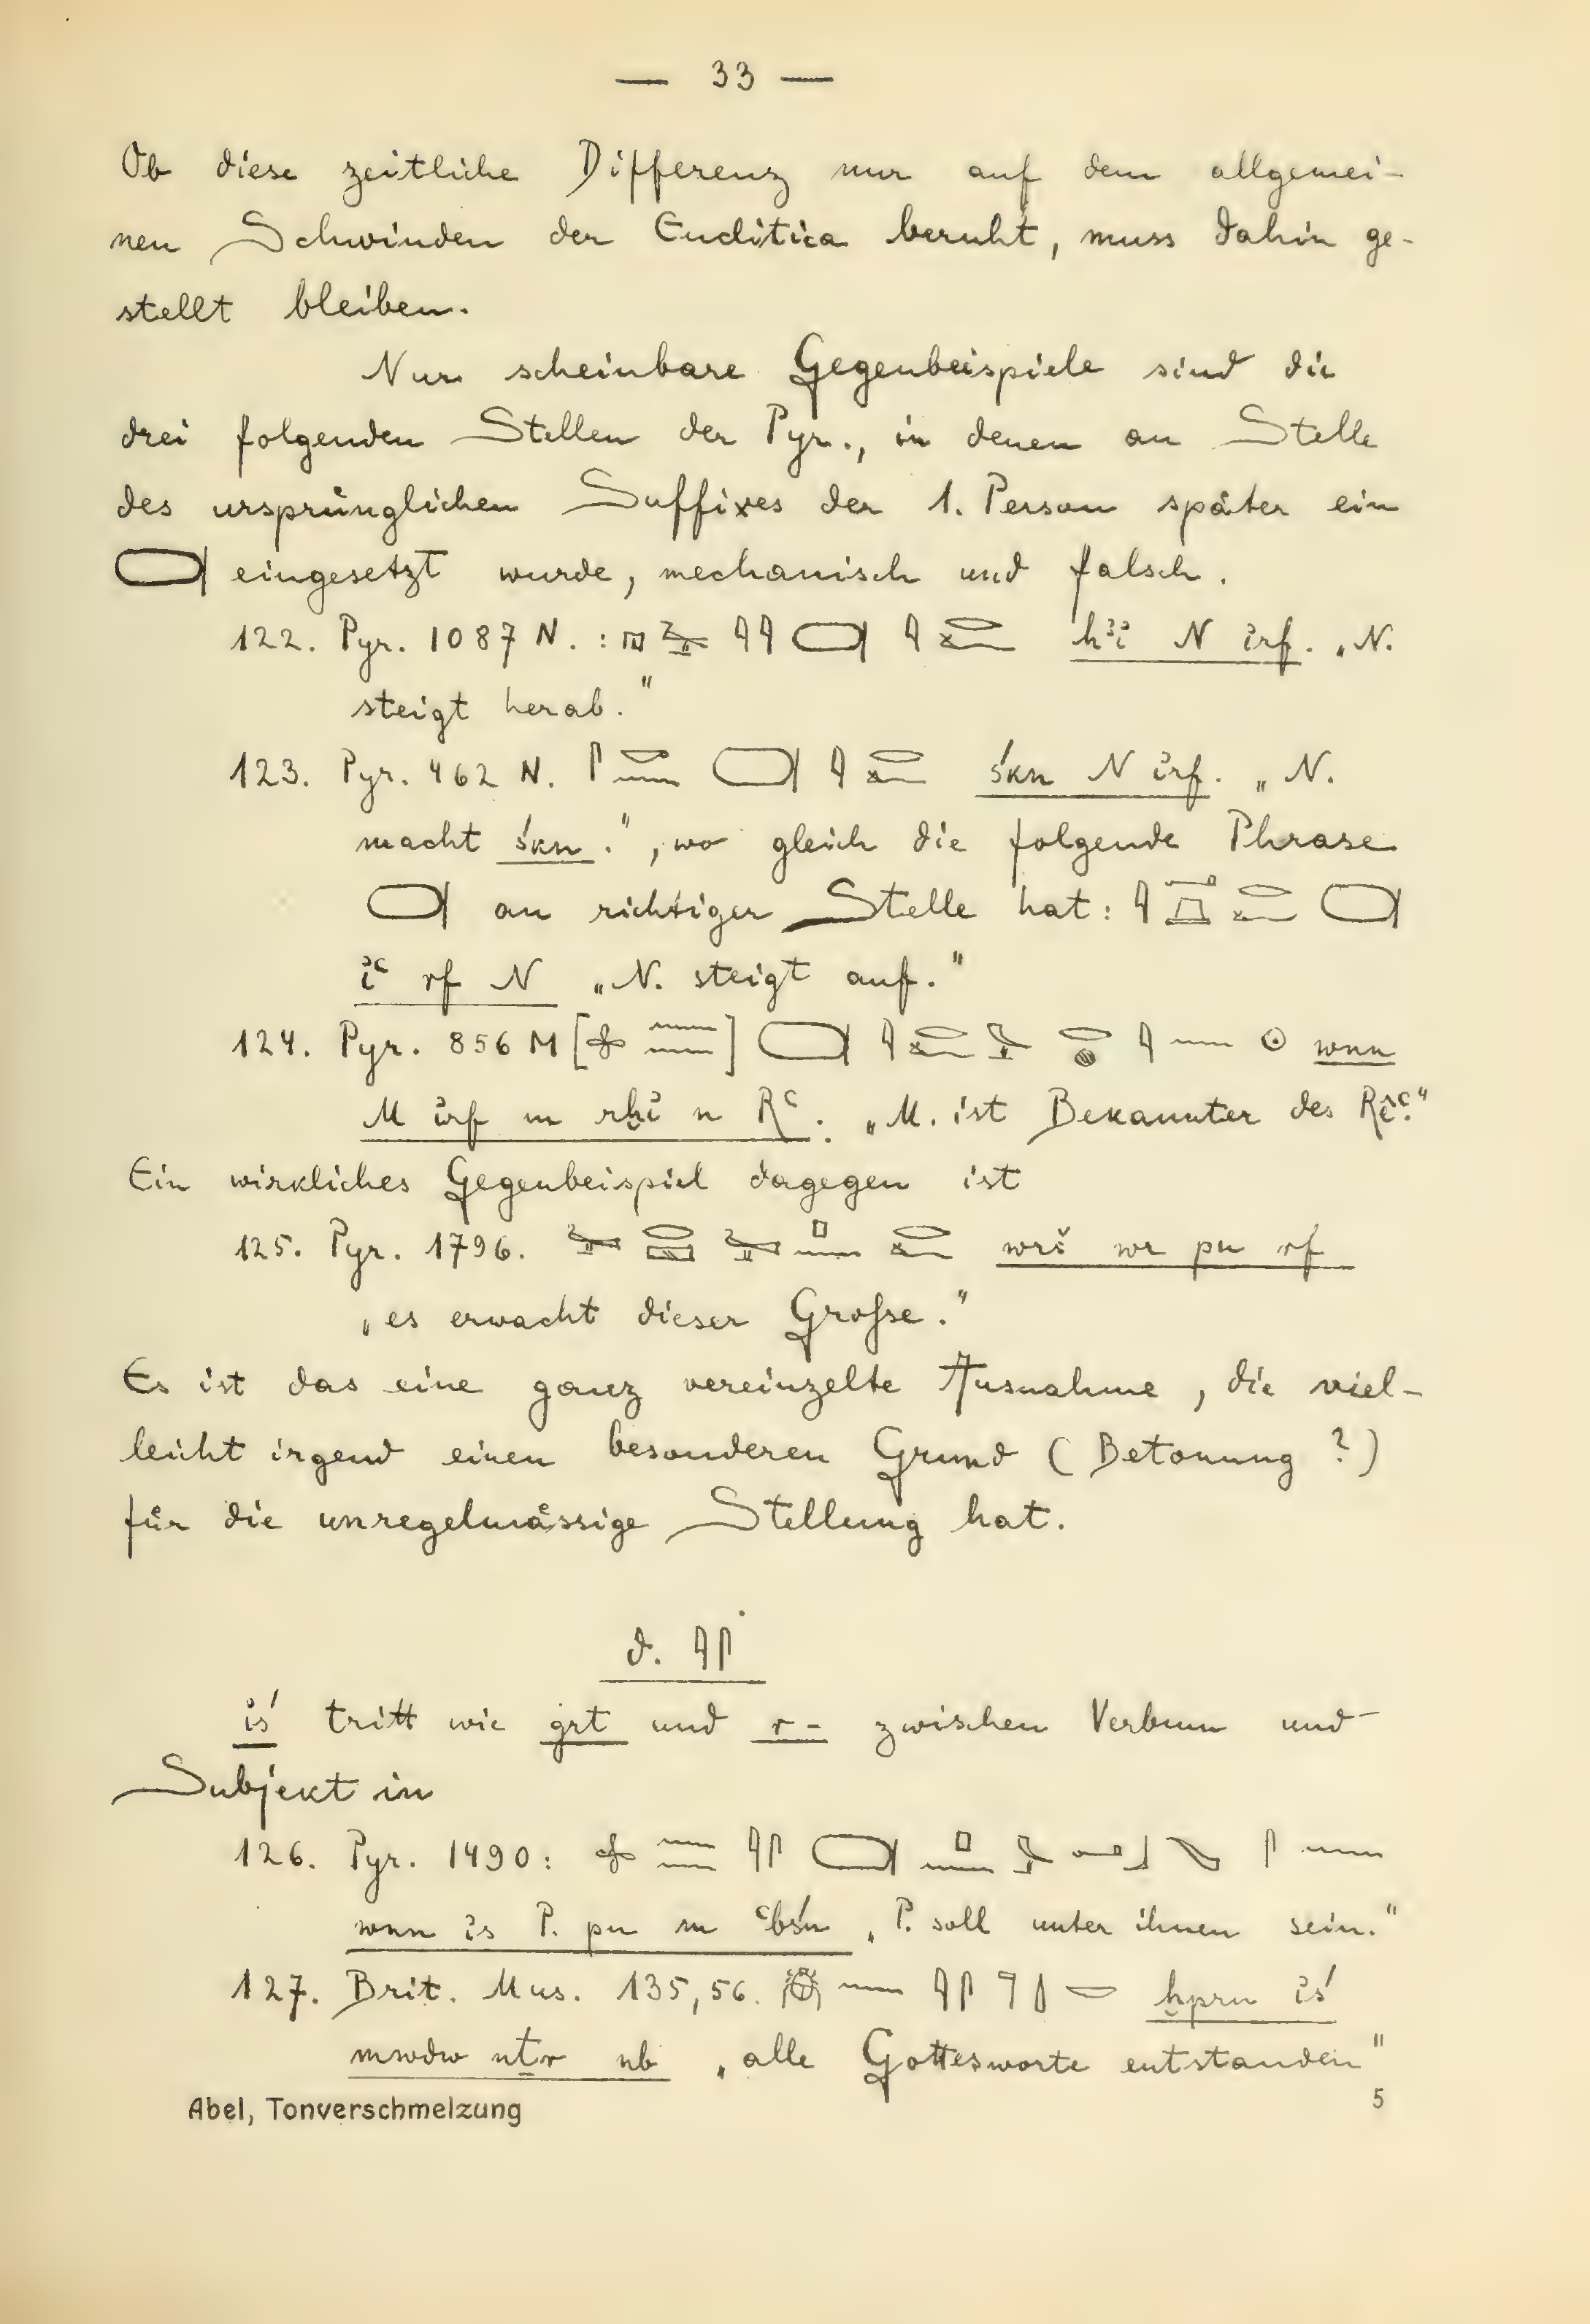 — 33 —
Ob diese zeitliche Differenz nur auf dem allgemei-
nen Schwinden der Enclitica beruht, muss dahin ge-
stellt bleiben.
Nur scheinbare Gegenbeispiele sind die
drei folgenden Stellen der Pyr., in denen an Stelle
des ursprünglichen Suffixes der 1. Person später ein
𓍷 eingesetzt wurde, mechanisch und falsch.
122. Pyr. 1087 N. : hꜣi N irf. „N.
steigt herab."
123. Pyr. 462 N. śkn N irf. „N.
macht śkn.", wo gleich die folgende Phrase
𓍷 an richtiger Stelle hat:
iꜥ rf N „N. steigt auf."
124. Pyr. 856 M wnn
M irf m rḫi n Rꜥ. „M. ist Bekannter des Rêꜥ."
Ein wirkliches Gegenbeispiel dagegen ist
125. Pyr. 1796. wrš wr pn rf
„es erwacht dieser Große."
Es ist das eine ganz vereinzelte Ausnahme, die viel-
leicht irgend einen besonderen Grund (Betonung?)
für die unregelmässige Stellung hat.
d. 𓇋𓋴
iś tritt wie grt und r- zwischen Verbum und
Subjekt in
126. Pyr. 1490:
wnn is P. pn m ꜥbśn „P. soll unter ihnen sein."
127. Brit. Mus. 135,56. ḫprn iś
mwdw nṯr nb „alle Gottesworte entstanden"
Abel, Tonverschmelzung 5